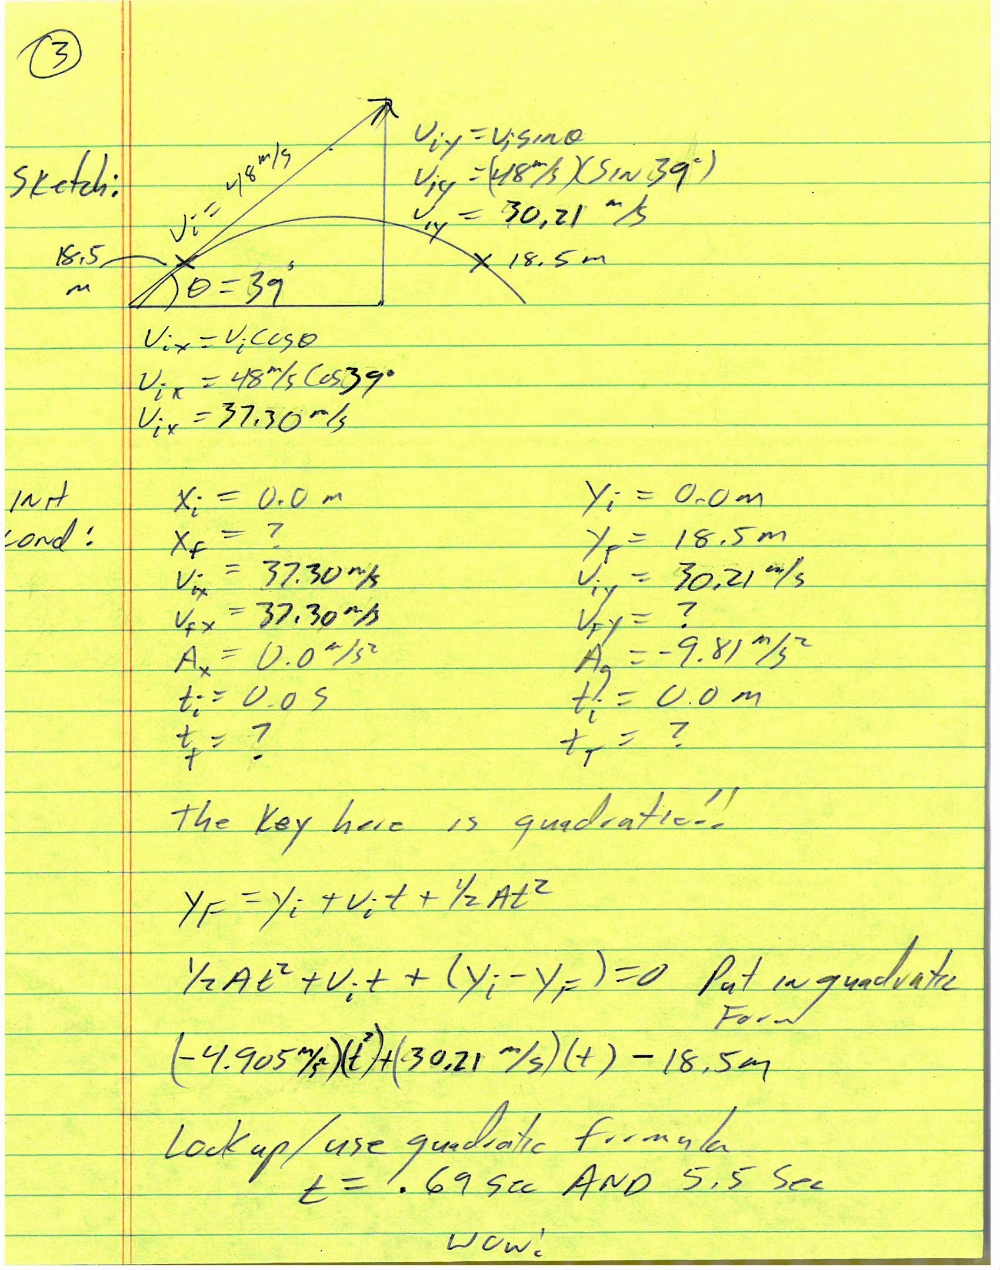 3
Sketch:
Vi = 48 m/s
Viy = Vi sinθ
Viy = (48 m/s)(SIN 39°)
Viy = 30.21 m/s
18.5 m
θ = 39°
18.5 m
Vix = Vi cosθ
Vix = 48 m/s Cos39°
Vix = 37.30 m/s
INIT cond:
Xi = 0.0 m
XF = ?
Vix = 37.30 m/s
Vfx = 37.30 m/s
Ax = 0.0 m/s²
ti = 0.0 S
tf = ?
Yi = 0.0 m
YF = 18.5 m
Viy = 30.21 m/s
VFy = ?
Ag = -9.81 m/s²
ti = 0.0 m
tF = ?
The Key here is quadratic!!
YF = Yi + Vit + ½ At²
½ At² + Vit + (Yi - YF) = 0 Put in quadratic Form
(-4.905 m/s²)(t²) + (30.21 m/s)(t) - 18.5 m
Look up/use quadratic formula
t = .69 sec AND 5.5 Sec
WOW!